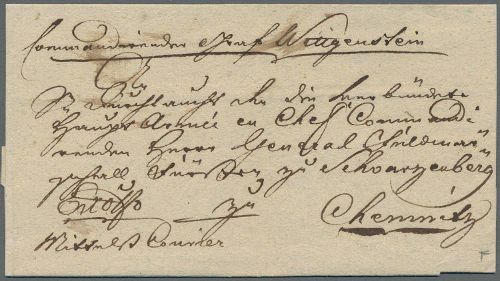 Commandirender Graf Wittgenstein
Sr Durchlaucht der die verbündete
Haupt Armée en Chef Commandi
renden Herrn General Feldmar
schall Fürsten zu Schwarzenberg
zu
Chemnitz
Mittelst Courier